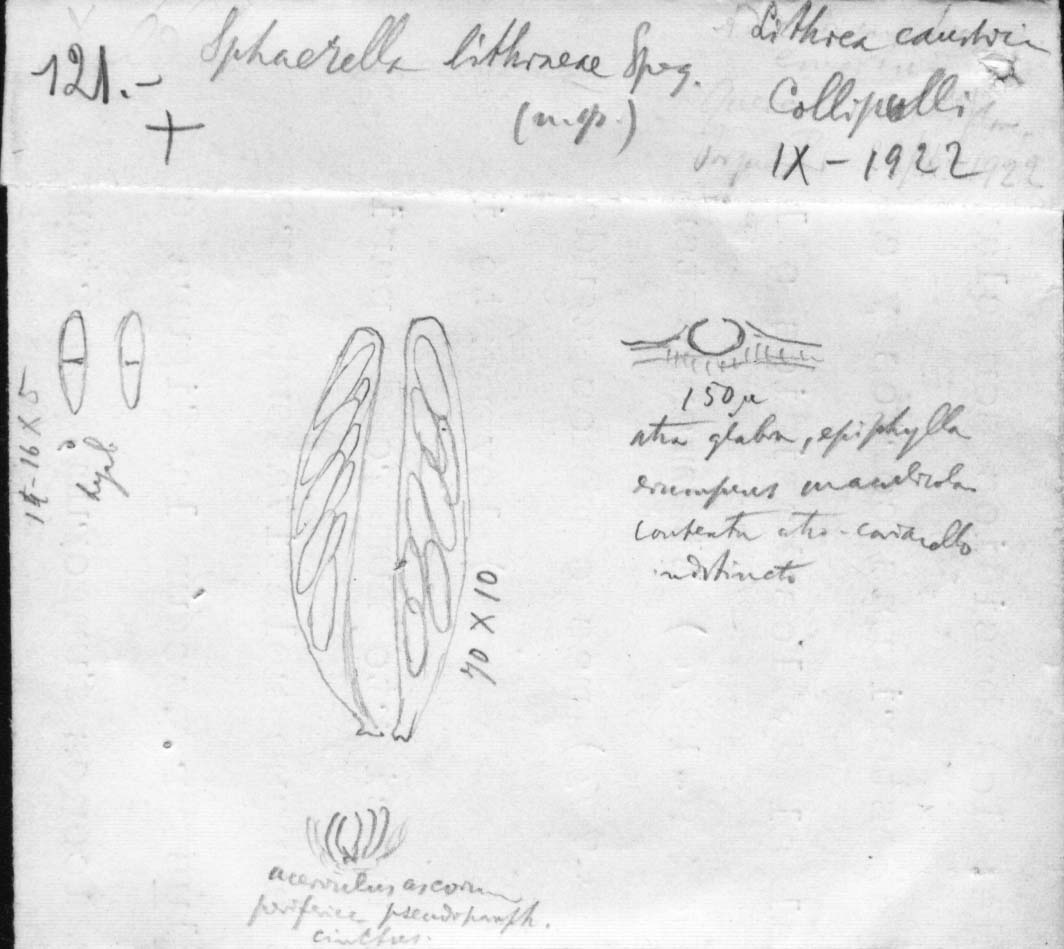 121.-
Sphaerella lithraeae Speg.
(n. sp.)
Lithrea caustica
Collipulli
IX - 1922
14-16 X 5
hyal
70 X 10
150 µ
atra glabra, epiphylla
erumpens maculicola
contextu atro-coriacello
indistincto
acervulus ascorum
periferice pseudoparaph.
cinctus.